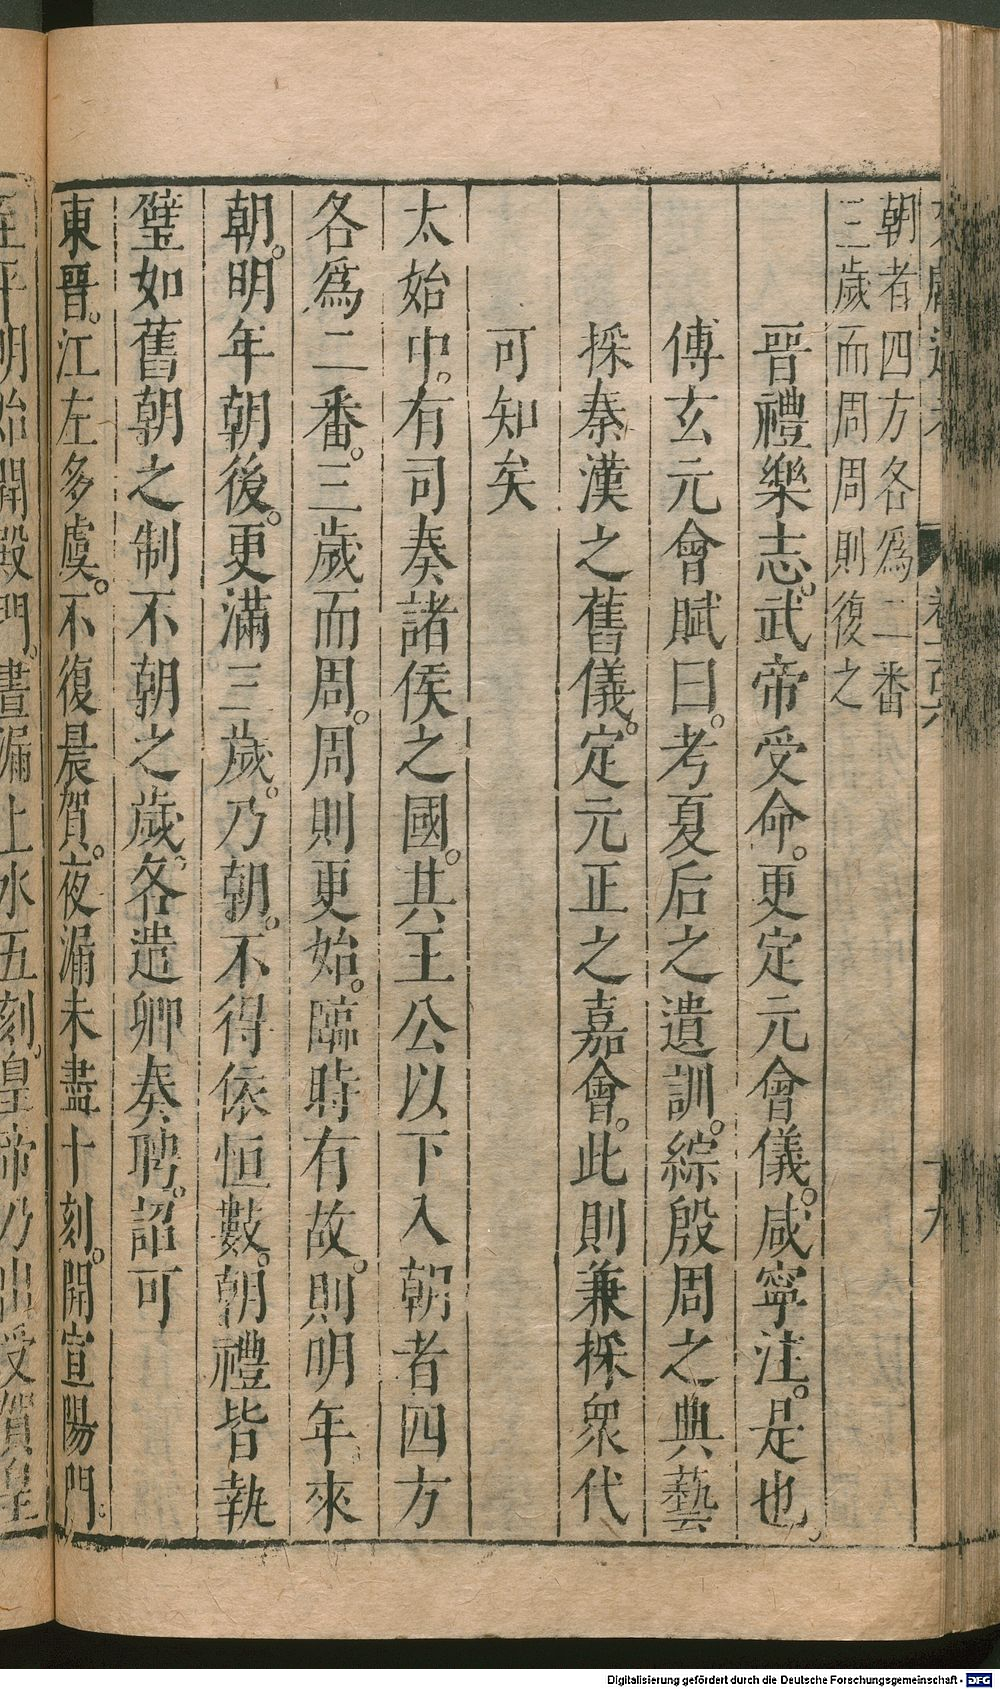 朝者四方各爲二番
三歲而周周則復之
晉禮樂志。武帝受命。更定元會儀。咸寧注。是也。
傅玄元會賦曰。考夏后之遺訓。綜殷周之典藝
採秦漢之舊儀。定元正之嘉會。此則兼採衆代
可知矣
太始中。有司奏諸侯之國。其王公以下入朝者四方
各爲二番。三歲而周。周則更始。臨時有故。則明年來
朝。明年朝後。更滿三歲。乃朝。不得依恒數。朝禮皆執
璧如舊朝之制不朝之歲。各遣卿奏聘。詔可
東晉。江左多虞。不復晨賀。夜漏未盡十刻。開宣陽門。
至平明始開殿門。晝漏上水五刻。皇帝乃出受賀皇
Digitalisierung gefördert durch die Deutsche Forschungsgemeinschaft - DFG